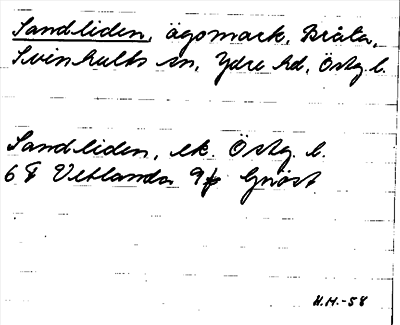 Sandliden, ägomark, Bråta,
Svinhults sn, Ydre hd, Östg. l.
Sandliden, ek. Östg. l.
6 F Vetlanda 9 f Gnöst
H.H.-58